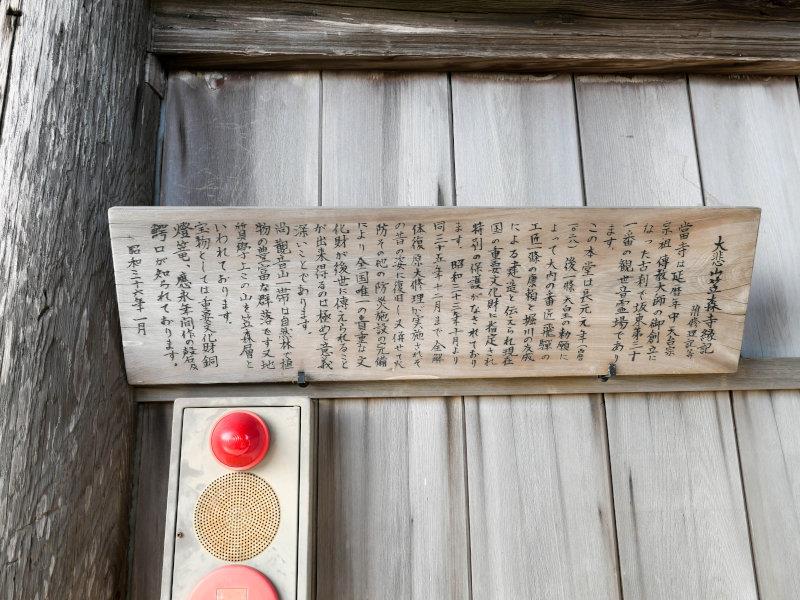 大悲山笠森寺縁記
附修理記等
當寺は延暦年中天台宗
宗祖傳教大師の御創立に
なった古刹で坂東第三十
一番の観世音霊場であり
ます。
この本堂は長元元年(西暦
一〇二八)後一條天皇の勅願に
よって大内の番匠飛騨の
工匠一條の康頼と堀川の友成
による建造と伝えられ現在
国の重要文化財に指定され
特別の保護がなされており
ます。昭和三十二年十月より
同三十五年十二月まで全解
体復原大修理が実施されそ
の昔の姿に復旧し又併せて火
防その他の防災施設の完備
により全国唯一の貴重な文
化財が後世に傳えられること
が出来得るのは極めて意義
深いことであります。
尚観音山一帯は自然林で植
物の豊富な群落をす又地
質学上この山を笠森層と
いわれております。
宝物としては重要文化財銅
燈篭、應永年間作の磬及
鰐口が知られております。
昭和三十六年一月